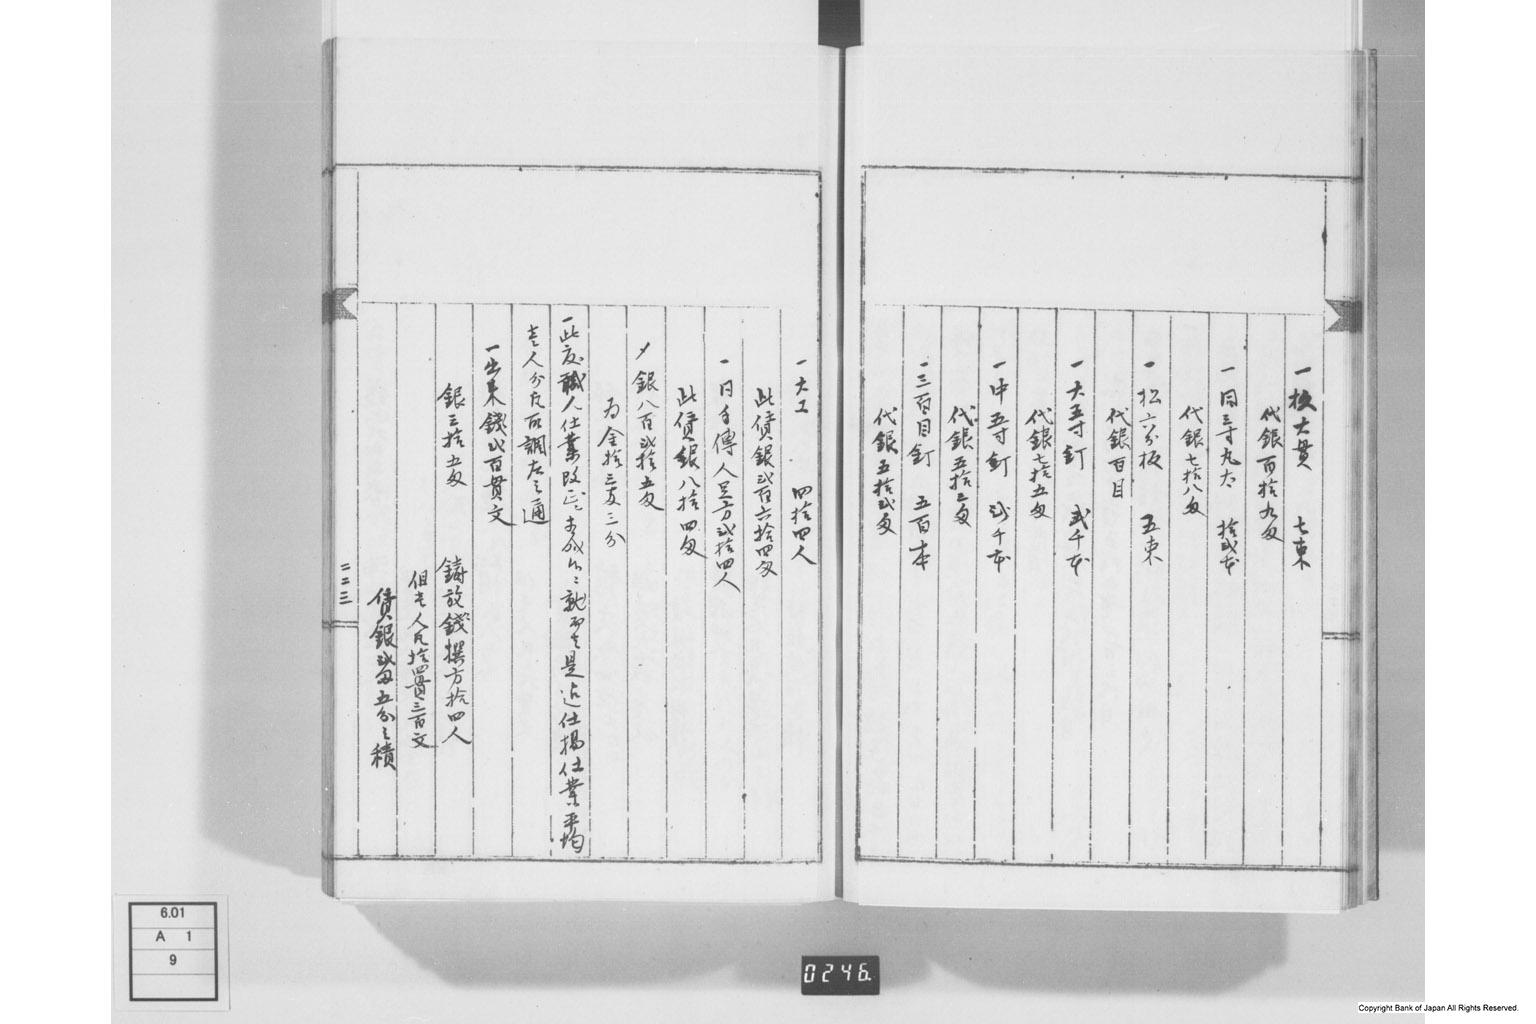 一 板大貫 七束
代銀百拾九匁
一 同三寸丸太 拾弐本
代銀七拾八匁
一 松六分板 五束
代銀百目
一 大五寸釘 弐千本
代銀七拾五匁
一 中五寸釘 弐千本
代銀五拾三匁
一 三百目釘 五百本
代銀五拾弐匁
一 大工 四拾四人
此賃銀弐百六拾四匁
一 同手傳人足方弐拾四人
此賃銀八拾四匁
〆銀八百弐拾五匁
為金拾三両三分
一此度職人仕業改正 就而者是迄仕揚仕業平均
壱人分凡而調左之通
一出来錢弐百貫文
銀三拾五匁 鋳放錢撰方拾四人
但壱人凡拾四貫三百文
賃銀弐匁五分之積
二二三
6.01
A 1
9
0246.
Copyright Bank of Japan All Rights Reserved.